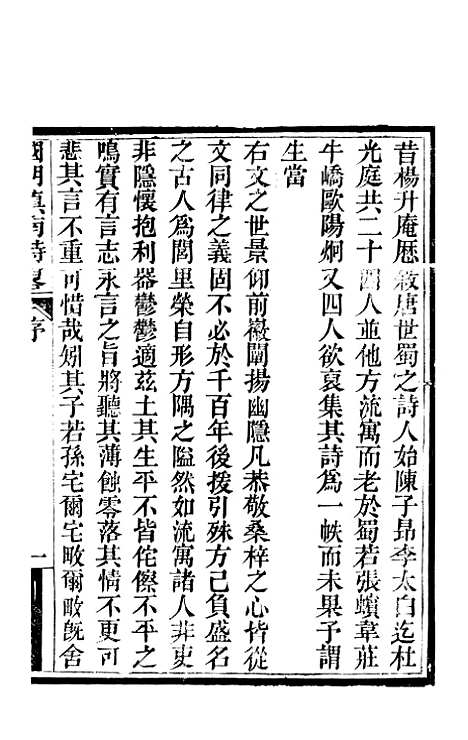 昔楊升庵歷敘唐世蜀之詩人始陳子昂李太白迄杜
光庭共二十四人並他方流寓而老於蜀若張蠙韋莊
牛嶠歐陽炯又四人欲裒集其詩爲一帙而未果予謂
生當
右文之世景仰前徽闡揚幽隱凡恭敬桑梓之心皆從
文同律之義固不必於千百年後援引殊方已負盛名
之古人爲閭里榮自形方隅之隘然如流寓諸人非吏
非隱懷抱利器鬱鬱適茲土其生平不皆侘傺不平之
鳴實有言志永言之旨將聽其薄蝕零落其情不更可
悲其言不重可惜哉矧其子若孫宅爾宅畋爾畋既舍
國朝滇南詩畧 序 一